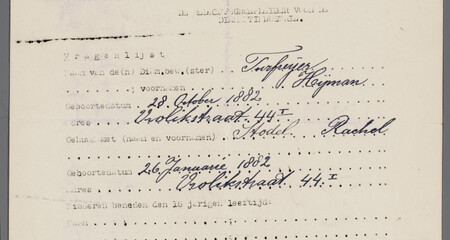 VOOR DE
Vragenlijst
Naam van de(n) Diam.bew.(ster) Turfreijer
voornamen Hijman
Geboortedatum 28 October 1882
Adres Vrolikstraat 44 I
Gehuwd met (naam en voornamen) Stodel Rachel
Geboortedatum 26 Januarie 1882
Adres Vrolikstraat 44 I
Kinderen beneden den 16 jarigen leeftijd:
Naam